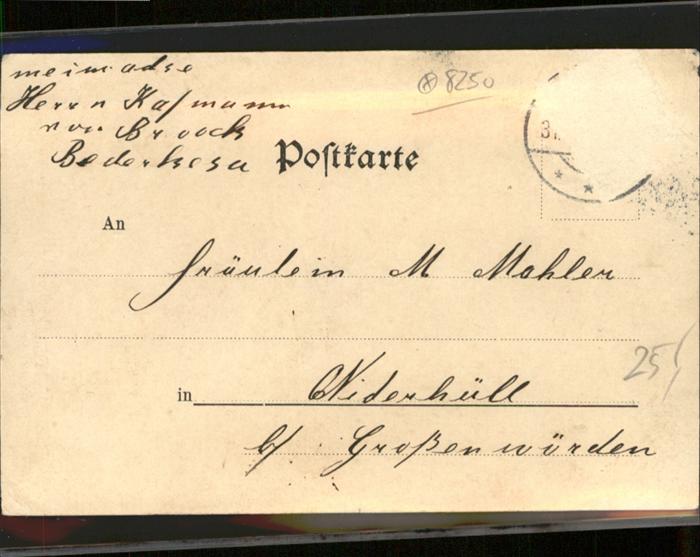 meine adse
Herrn Kafmann
von Broock
Bederkesa
Postkarte
⊗ 8250
31.
An
Fräulein M Mahler
25,
in Niderhüll
b/ Großenwörden